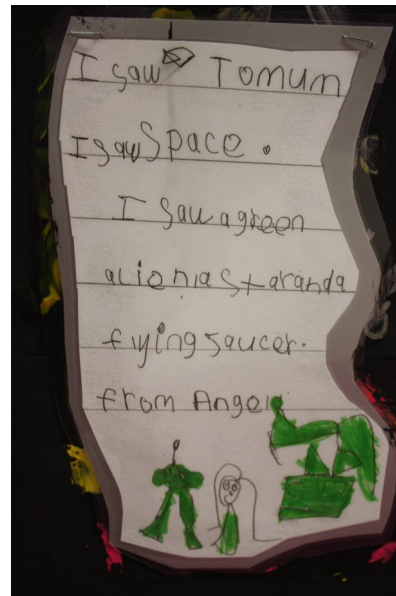 I saw Tomum
I saw Space.
I saw a green
alien a Star and a
flying saucer.
from Angel